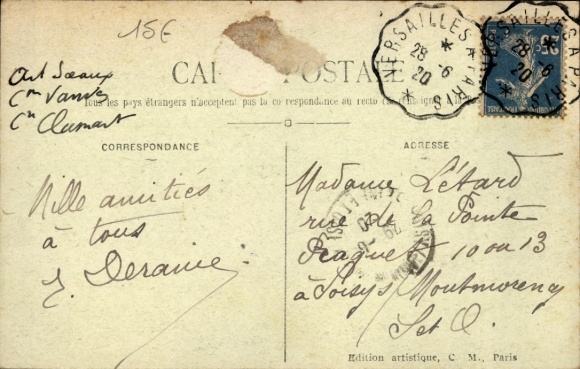 15€
Art Sceaux
Con Vanves
Cn Clamart
CARTE POSTALE
Tous les pays étrangers n'acceptent pas la correspondance au recto
CORRESPONDANCE
ADRESSE
VERSAILLES A PARIS
28 - 6
20
VERSAILLES A PARIS
28 - 6
20
Mille amitiés
à tous
Madame Létard
rue de la Pointe
Raquet 10 ou 13
à Soisy s/ Montmorency
S et O.
Edition artistique, C. M., Paris